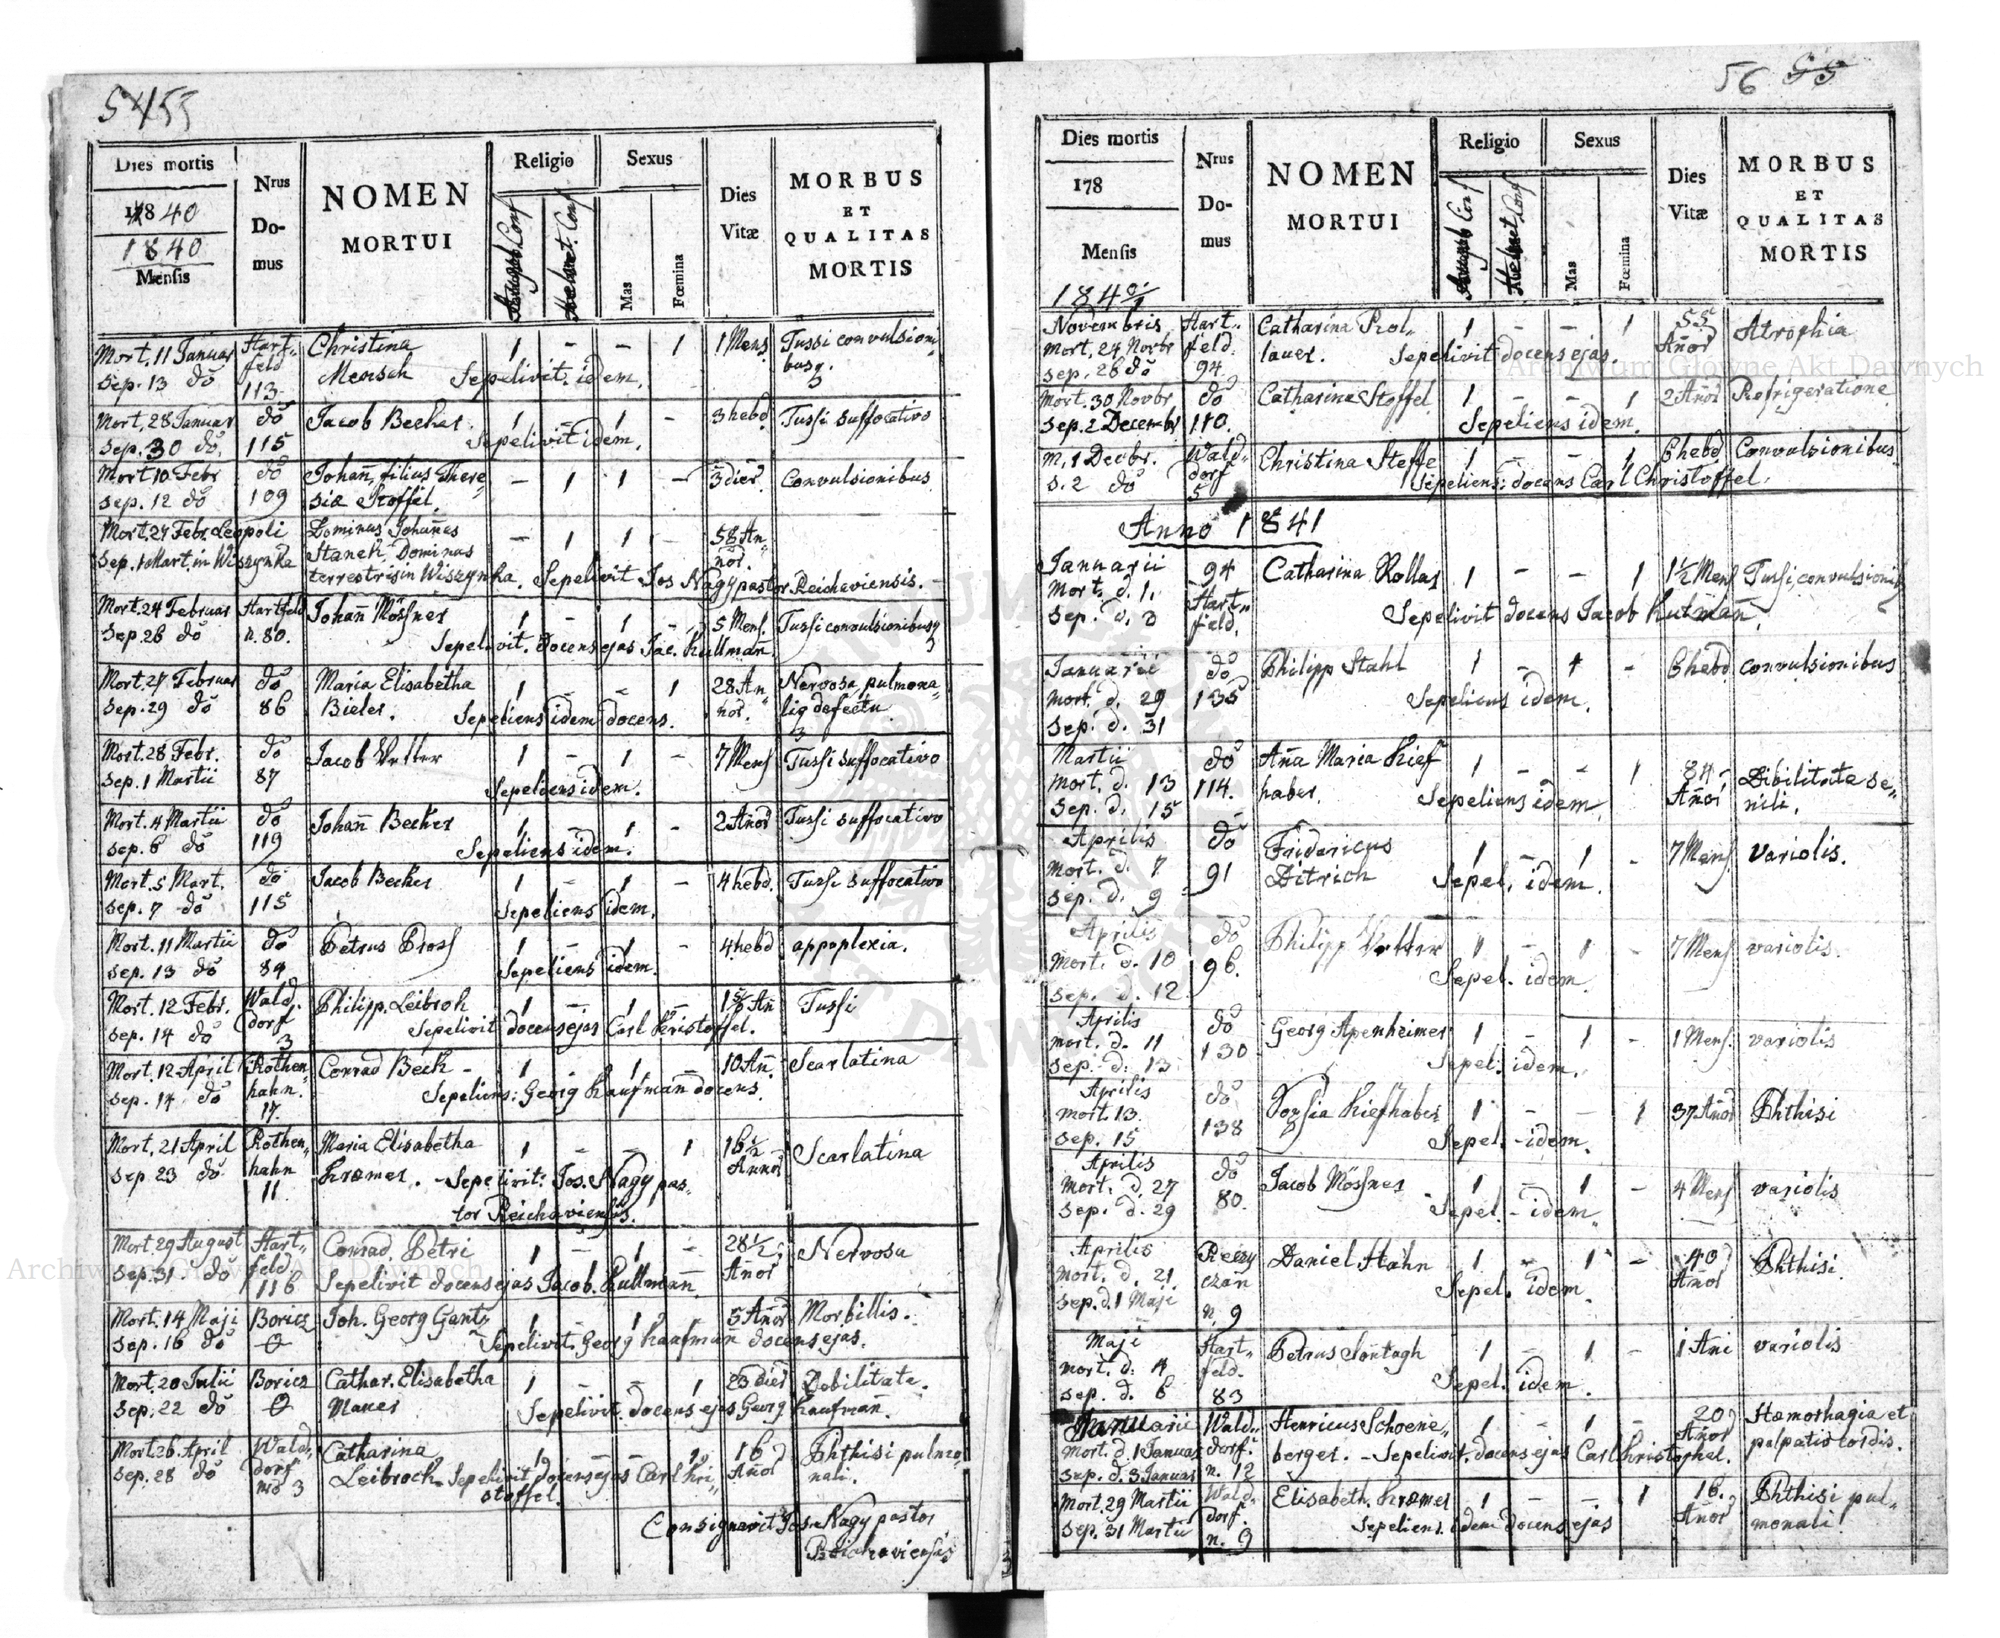 56
Dies mortis
1840
1840
Mensis
Nrus
Do-
mus
NOMEN
MORTUI
Religio
Sexus
Mas
Fœmina
Dies
Vitæ
MORBUS
ET
QUALITAS
MORTIS
Mort. 11 Januar Hart- Christina 1 - - 1 1 Mens. Tussi convulsioni
Sep. 13 do feld Mensch Sepelivit idem. busq.
113.
Mort. 28 Januar do Jacob Becker 1 - 1 - 3 hebd Tussi suffocativo
Sep. 30 do. 115 Sepelivit idem.
Mort 10 Febr do Johañ, filius There- - 1 1 - 3 dier. Convulsionibus
Sep. 12 do 109 siæ Stoffel.
Mort. 27 Febr. Leopoli Dominus Johañes - 1 1 - 58 An-
Sep. 1 Mart. in Wiszynka Stanek, Dominus nor.
terrestris in Wiszynka. Sepelivit Jos Nagy pastor Reichaviensis.
Mort. 24 Februar Hartfeld Johañ Mössner 1 - 1 - 5 Mens. Tussi convulsionibusq
Sep. 26 do n. 80. Sepelivit. Docens ejas Jac. Kullmañ.
Mort. 27 Februar do Maria Elisabetha 1 - - 1 28 An- Nervosa, pulmona-
Sep. 29 do 86 Bieler. Sepeliens idem docens. nor. liq defectu
Mort. 28 Febr. do Jacob Vetter 1 - 1 - 7 Mens Tussi suffocativo
Sep. 1 Martii 87 Sepeliens idem.
Mort. 4 Martii do Johañ Becker 1 - 1 - 2 Añor Tussi suffocativo
Sep. 6 do 119 Sepeliens idem.
Mort. 5 Mart. do Jacob Becker 1 - 1 - 4 hebd. Tussi suffocativo
Sep. 7 do 115 Sepeliens idem.
Mort. 11 Martii do Petrus Pross 1 - 1 - 4 hebd appoplexia.
Sep. 13 do 84 Sepeliens idem.
Mort. 12 Febr. Wald- Philipp Leibroh 1 - 1 - Añ Tussi
Sep. 14 do dorf Sepelivit docens ejas Carl Kristoffel.
3
Mort. 12 April Rothen- Conrad Beck - 1 - 1 - 10 Añ. Scarlatina
Sep. 14 do hahn. Sepeliens: Georg Kaufman docens.
17.
Mort. 21 April Rothen- Maria Elisabetha 1 - - 1 16½ Scarlatina
Sep 23 do hahn Kræmer. - Sepelivit: Jos. Nagy pas- Annor
11 tor Reichaviensis.
Mort. 29 August Hart- Conrad Petri 1 - 1 - 28½ Nervosa
Sep. 31 do feld Sepelivit docens ejas Jacob. Kullmañ. Añor
116
Mort. 14 Maji Boricz Joh. Georg Gantz 1 - 1 - 5 Añor Morbillis.
Sep. 16 do Sepelivit Georg Kaufmañ docens ejas.
Mort. 20 Julii Boricz Cathar. Elisabetha 1 - - 1 23 dier Debilitate.
Sep. 22 do Mauer Sepelivit docens ejas Georg Kaufmañ.
Mort. 26. April Wald- Catharina 1 - - 1 16 Phthisi pulmo-
Sep. 28 do dorf Leibroch - Sepelivit docens ejas Carl Kri- Añor nali.
nro 3 stoffel.
Consignavit Jos. Nagy pastor
Reichaviensis
Dies mortis
178
Mensis
1840/1
Nrus
Do-
mus
NOMEN
MORTUI
Religio
Sexus
Mas
Fœmina
Dies
Vitæ
MORBUS
ET
QUALITAS
MORTIS
Novembris Hart- Catharina Prol- 1 - - 1 55 Atrophia
Mort. 24 Novbr feld. lauer. Sepelivit docens ejas. Añor
Sep. 26 do 94.
Mort. 30 Novbr do Catharina Stoffel 1 - - 1 2 Añor Refrigeratione
Sep. 2 Decembr 110. Sepeliens idem.
M. 1 Decbr. Wald- Christina Steffe 1 - - 1 6 hebd Convulsionibus
S. 2 do dorf Sepeliens: docens Carl Christoffel.
5
Anno 1841
Januarii 94 Catharina Rollar 1 - - 1 1½ Mens Tussi, convulsionib
Mort. d. 1. Hart- Sepelivit docens Jacob Kulmañ.
Sep. d. 3 feld.
Januarii do Philipp Stahl 1 - 1 - 6 hebd convulsionibus
Mort. d. 29 135 Sepeliens idem.
Sep. d. 31
Martii do Aña Maria Kief- 1 - - 1 84 Dibilitate se-
Mort. d. 13 114. haber. Sepeliens idem. Añor nili.
Sep. d. 15
Aprilis do Fridericus 1 - 1 - 7 Mens Variolis.
Mort. d. 7 91 Ditrich Sepel. idem.
Sep. d. 9
Aprilis do Philipp Vetter 1 - 1 - 7 Mens variolis.
Mort. d. 10 96. Sepel. idem.
Sep. d. 12
Aprilis do Georg Apenheimer 1 - 1 - 1 Mens. variolis
mort. d. 11 130 Sepel. idem.
Sep. d. 13
Aprilis do Sophia Kiefhaber 1 - - 1 37 Añor Phthisi
mort. 13. 138 Sepel. - idem.
Sep. 15
Aprilis do Jacob Mössner 1 - 1 - 4 Mens variolis
Mort. d. 27 80. Sepel. - idem
Sep. d. 29
Aprilis Daniel Stahn 1 - 1 - 40 Phthisi
mort. d. 21. Sepel. idem Añor
Sep. d. 1 Maji n. 9
Maji Hart- Petrus Sontagh 1 - 1 - 1 Ani variolis
mort. d. 4 feld. Sepel. idem.
Sep. d. 6 83
Januarii Wald- Henricus Schoene- 1 - 1 - 20 Hæmorhagia et
mort. d. 1 Januar dorf. berger. - Sepelivit docens ejas Carl Christophel. Añor palpatio cordis.
Sep. d. 3 Januar n. 12
Mort. 29 Martii Wald- Elisabeth. Kræmer 1 - - 1 16. Phthisi pul-
Sep. 31 Martii dorf. Sepeliens idem docens ejas Añor monali
n. 9
Archiwum Główne Akt Dawnych
Archiwum Główne Akt Dawnych